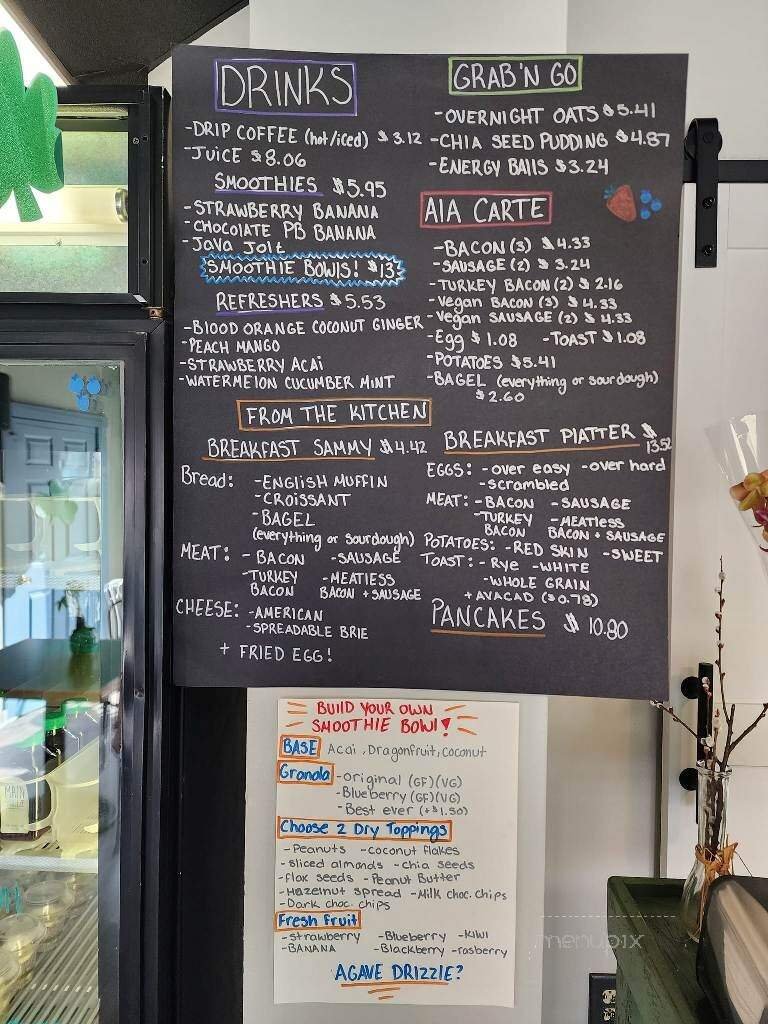 DRINKS
-DRIP COFFEE (hot/iced) $3.12
-JUICE $8.06
SMOOTHIES $5.95
-STRAWBERRY BANANA
-CHOCOLATE PB BANANA
-JAVA JOLT
SMOOTHIE BOWLS! $13
REFRESHERS $5.53
-BLOOD ORANGE COCONUT GINGER
-PEACH MANGO
-STRAWBERRY ACAi
-WATERMELON CUCUMBER MINT
GRAB'N GO
-OVERNIGHT OATS $5.41
-CHIA SEED PUDDING $4.87
-ENERGY BALLS $3.24
ALA CARTE
-BACON (3) $4.33
-SAUSAGE (2) $3.24
-TURKEY BACON (2) $2.16
-Vegan BACON (3) $4.33
-Vegan SAUSAGE (2) $4.33
-Egg $1.08 -TOAST $1.08
-POTATOES $5.41
-BAGEL (everything or sourdough)
$2.60
FROM THE KITCHEN
BREAKFAST SAMMY $4.42
Bread: -ENGLISH MUFFIN
-CROISSANT
-BAGEL
(everything or sourdough)
MEAT: -BACON -SAUSAGE
-TURKEY -MEATLESS
BACON BACON + SAUSAGE
CHEESE: -AMERICAN
-SPREADABLE BRIE
+ FRIED EGG!
BREAKFAST PLATTER $
13.52
EGGS: -over easy -over hard
-scrambled
MEAT: -BACON -SAUSAGE
-TURKEY -MEATLESS
BACON BACON + SAUSAGE
POTATOES: -RED SKIN -SWEET
TOAST: -Rye -WHITE
-WHOLE GRAIN
+AVACAD ($0.78)
PANCAKES $10.80
BUILD YOUR OWN
SMOOTHIE BOWL!
BASE Acai, Dragonfruit, coconut
Granola -original (GF)(VG)
-Blueberry (GF)(VG)
-Best ever (+$1.50)
Choose 2 Dry Toppings
-Peanuts -coconut flakes
-sliced almonds -chia seeds
-flax seeds -Peanut Butter
-Hazelnut spread -Milk choc. chips
-Dark choc. chips
Fresh Fruit
-Strawberry -Blueberry -kiwi
-BANANA -Blackberry -rasberry
AGAVE DRIZZLE?
MAIN
menupix